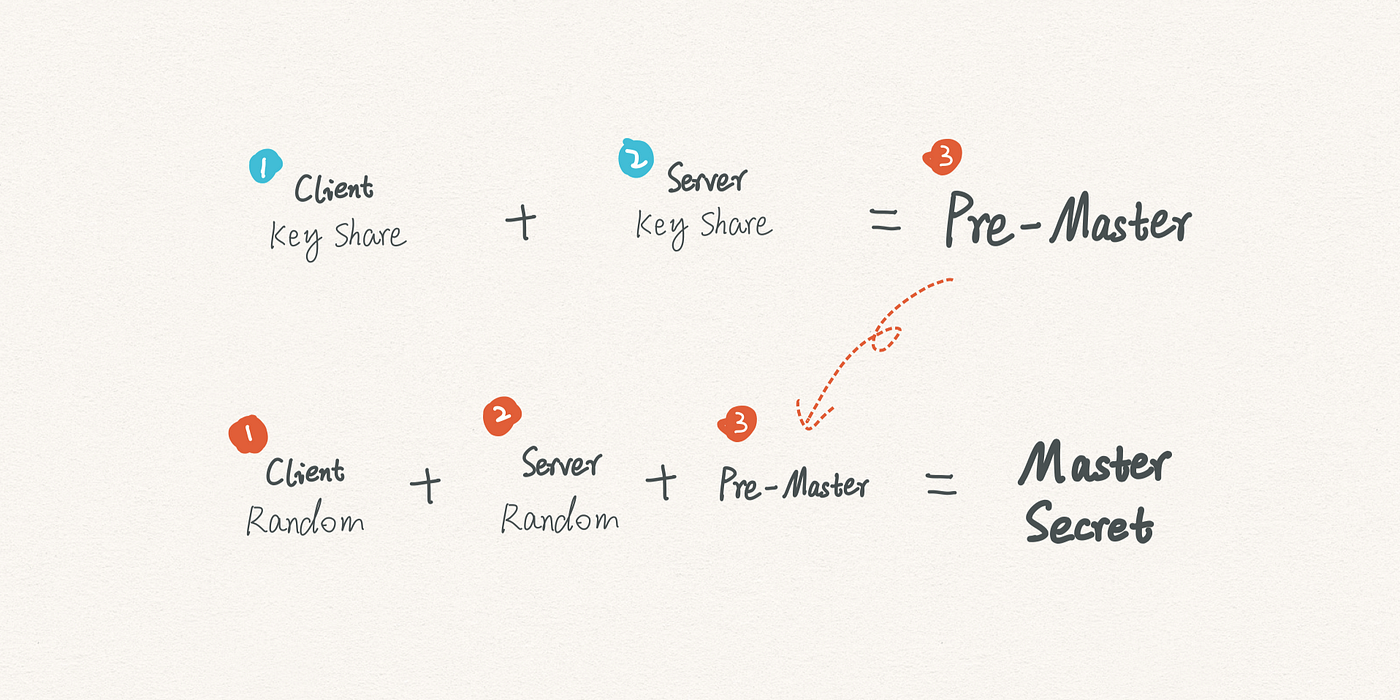 1
Client
Key Share
+
2
Server
Key Share
=
3
Pre-Master
1
Client
Random
+
2
Server
Random
+
3
Pre-Master
=
Master
Secret